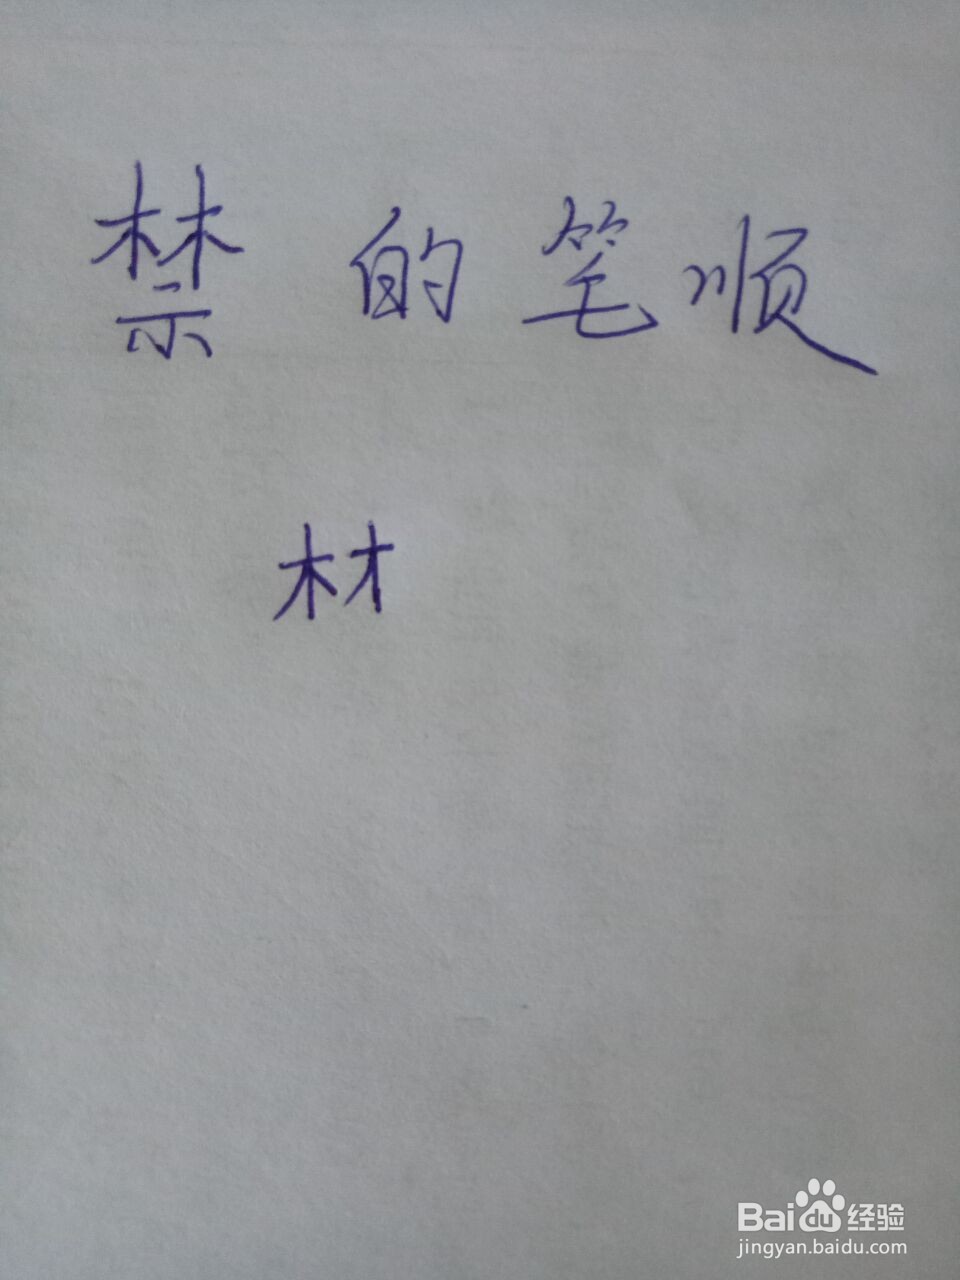 禁的笔顺
材
Baidu经验
jingyan.baidu.com